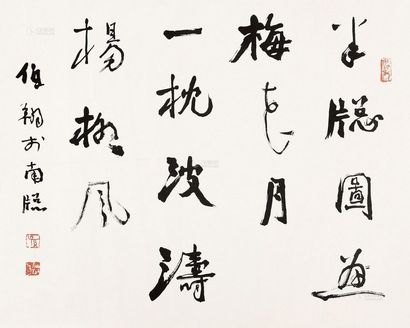 半牕圖畫
梅花月
一枕波濤
楊柳風
伯翔於南牕